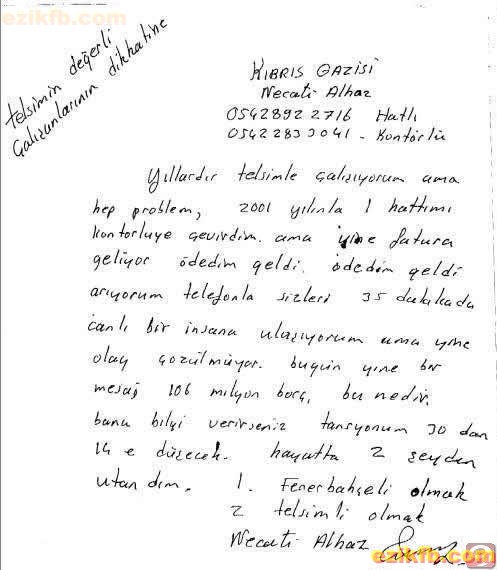 ezikfb.com
telsimin değerli
çalışanlarının dikkatine
KIBRIS GAZİSİ
Necati Alhaz
0542892 2716 Hatlı
0542 2833041 - Kontörlü
Yıllardır telsimle çalışıyorum ama
hep problem, 2001 yılında 1 hattımı
kontorluye çevirdim. ama yine fatura
geliyor ödedim geldi. ödedim geldi
arıyorum telefonla sizleri 35 dakikada
canlı bir insana ulaşıyorum ama yine
olay çözülmüyor. bugün yine bir
mesaj 106 milyon borç, bu nedir.
bana bilgi verirseniz tansyonum 30 dan
14 e düşecek. hayatta 2 şeyden
utandım. 1. Fenerbahçeli olmak
2 telsimli olmak
Necati Alhaz
ezikfb.com